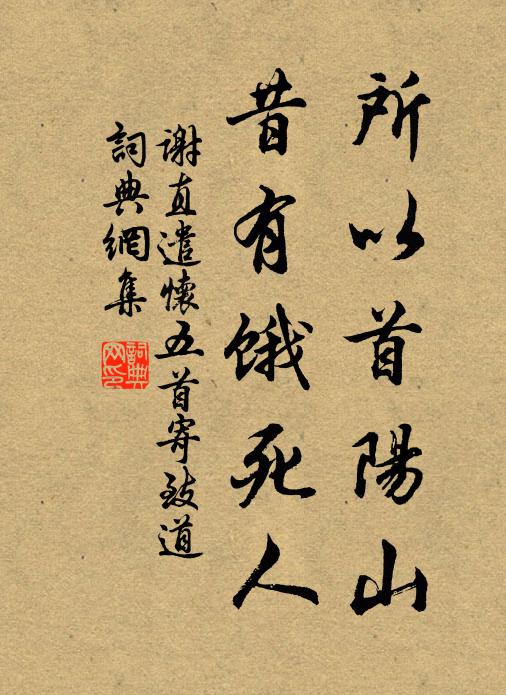 所以首陽山
昔有餓死人
謝直遣懷五首寄致道
詞典網集
詞典網印